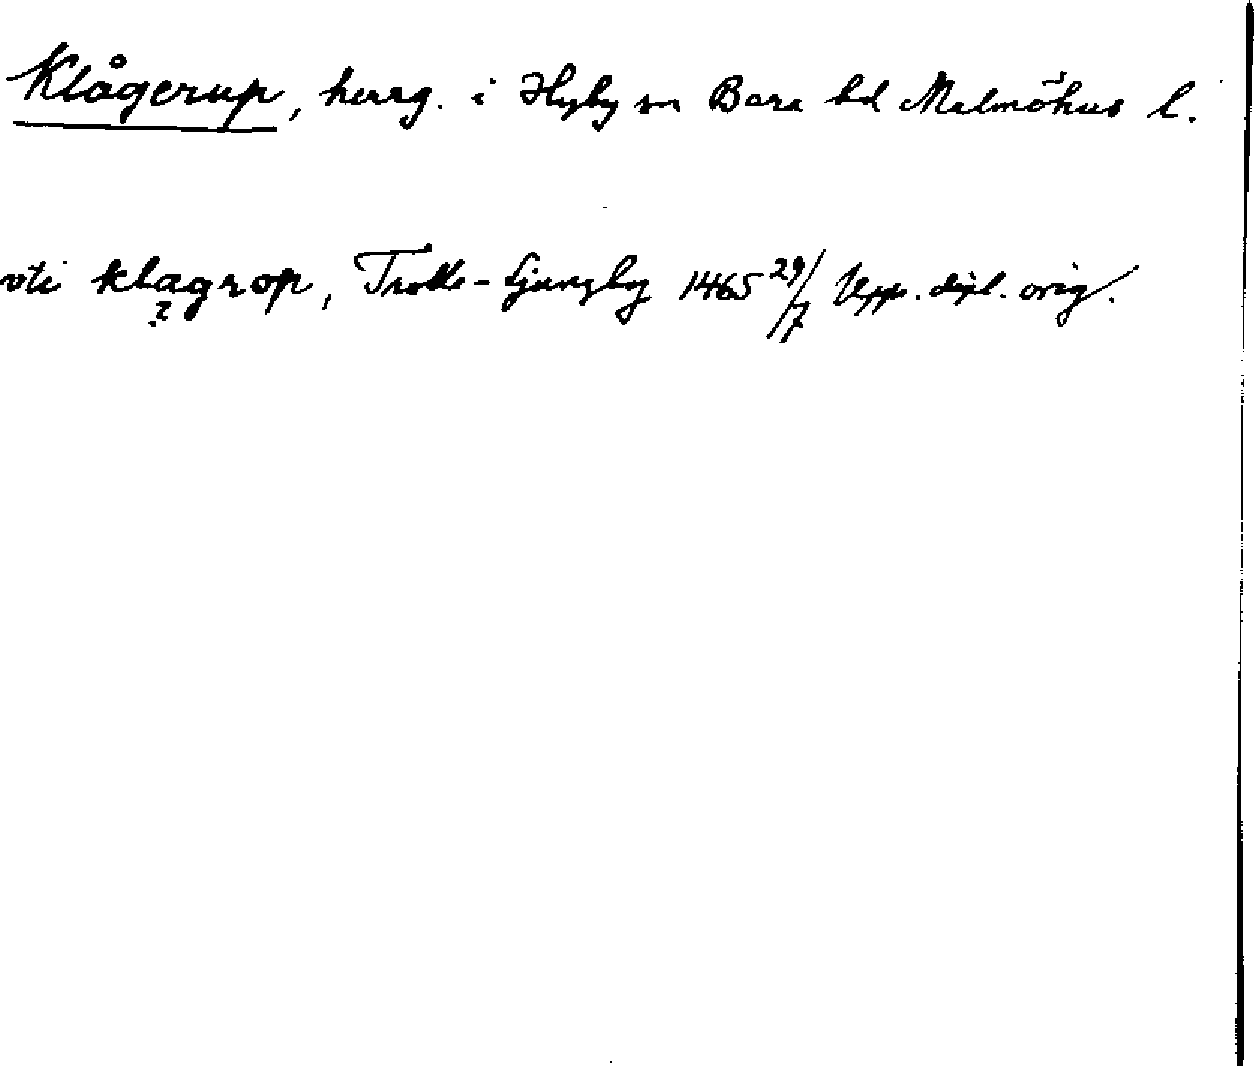 Klågerup, herrg. i Hyby sn Bara hd Malmöhus l.
vti klagrop, Trolle-Ljungby 1465 29/7 Upp. dipl. orig.
?